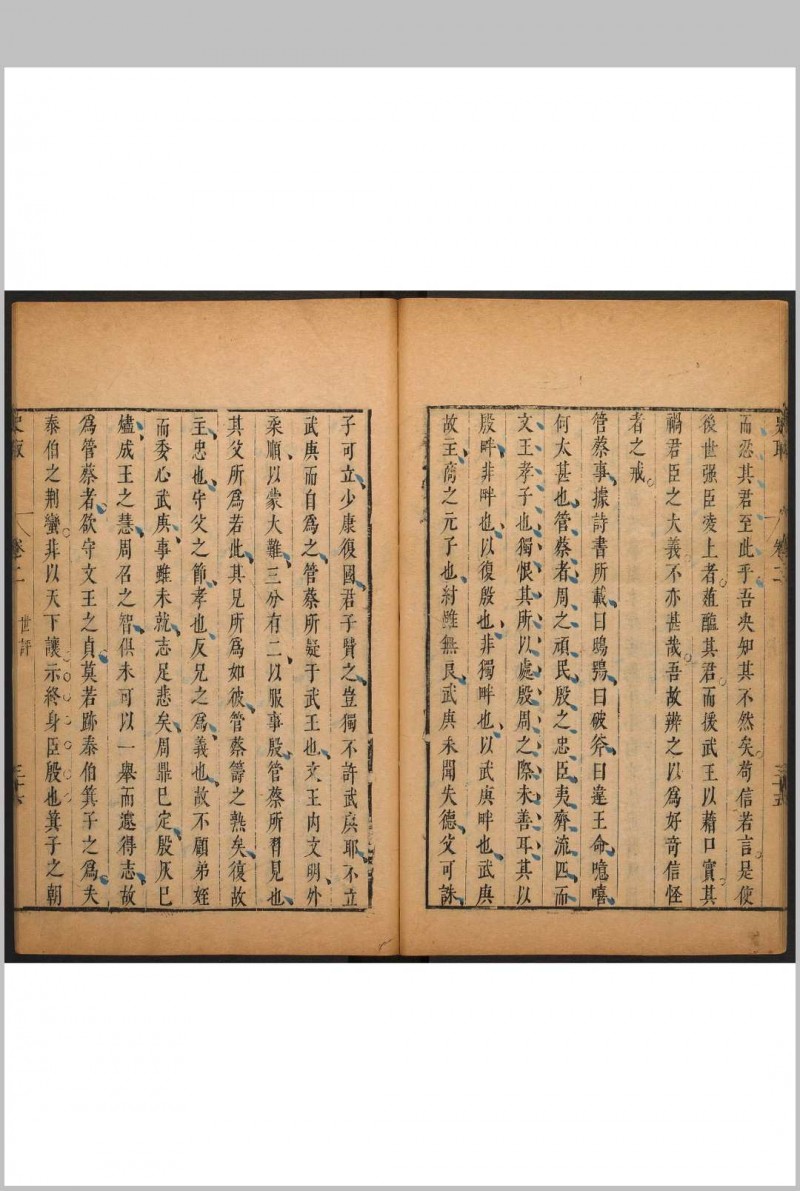 而忍其君至此乎吾央知其不然矣苟信若言是使
後世强臣凌上者葅醢其君而援武王以藉口實其
禍君臣之大義不亦甚哉吾故辨之以爲好奇信怪
者之戒
管蔡事據詩書所載曰鴟鴞曰破斧曰違王命噫嘻
何太甚也管蔡者周之頑民殷之忠臣夷齊流匹而
文王孝子也獨恨其所以處殷周之際未善耳其以
殷畔非畔也以復殷也非獨畔也以武庚畔也武庚
故主裔之元子也紂雖無良武庚未聞失德父可誅
卷二
三十五
子可立少康復國君子贊之豈獨不許武庚耶不立
武庚而自爲之管蔡所疑于武王也文王内文明外
柔順以蒙大難三分有二以服事殷管蔡所習見也
其父所爲若此其兄所爲如彼管蔡籌之熟矣復故
主忠也守父之節孝也反兄之爲義也故不顧弟姪
而委心武庚事雖未就志足悲矣周鼎已定殷灰已
燼成王之慧周召之智俱未可以一舉而遽得志故
爲管蔡者欲守文王之貞莫若跡泰伯箕子之爲夫
泰伯之荆蠻非以天下讓示終身臣殷也箕子之朝
卷二
世評
三十六